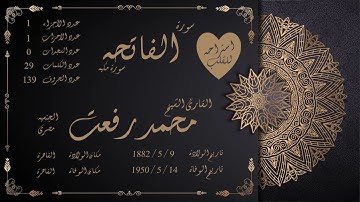 سورة
الفاتحه
سورة مكيه
استراحه
للقلب
عدد الأجزاء 1
عدد الأحزاب 1
عدد السجدات 0
عدد الكلمات 29
عدد الحروف 139
القارئ الشيخ
محمد رفعت
الجنسيه
مصري
تاريخ الولادة 9 / 5 / 1882 مكان الولادة القاهرة
تاريخ الوفاة 14 / 5 / 1950 مكان الوفاة القاهرة